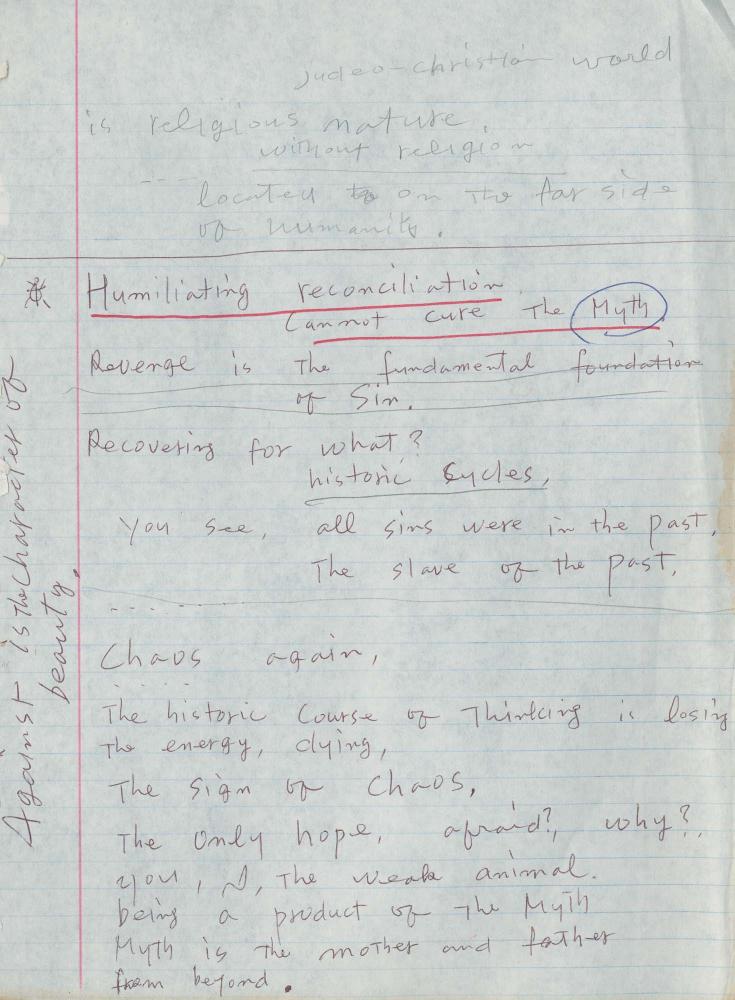 judeo-christian world
is religious nature.
without religion
located to on the far side
of humanity.
Humiliating reconciliation
Cannot cure the Myth.
Revenge is the fundamental foundation
of Sin.
Recovering for what?
historic cycles,
You see, all sins were in the past,
The slave of the past,
Chaos again,
The historic Course of Thinking is losing
the energy, dying,
The sign of Chaos,
The only hope, afraid?, why?,
you, I, the weak animal.
being a product of the Myth
Myth is the mother and father
from beyond.
Against is the character of
beauty.